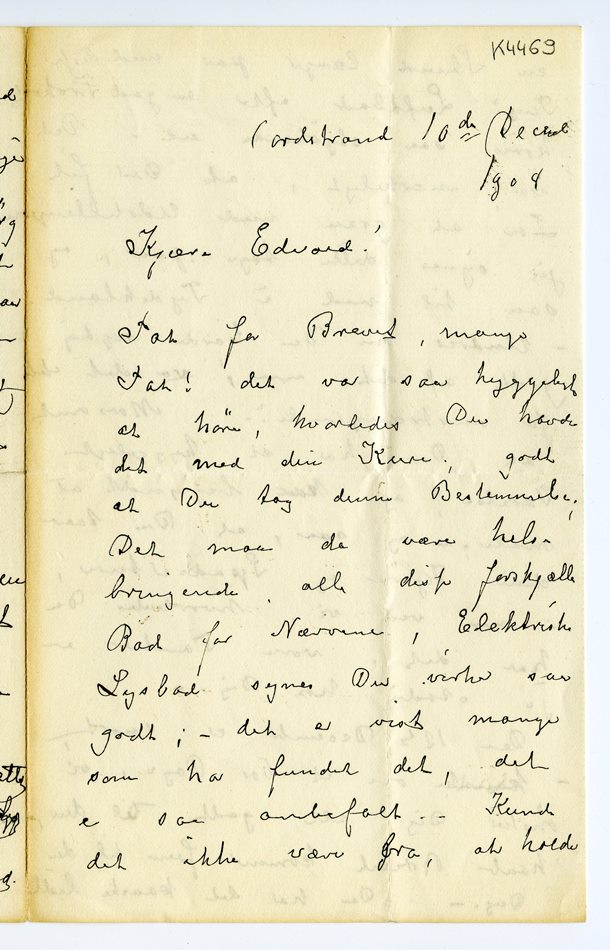 K4469
Nordstrand 10de Decemb
1908
Kjære Edvard!
Tak for Brevet, mange
Tak! det var saa hyggeligt
at høre, hvorledes Du havde
det med din Kur, godt
at Du tog denne Bestemmelse,
Det maa da være hels-
bringende, alle disse forskjælli
Bad for Nærverne, Elektriske
Lysbad synes Du virke saa
godt; – det er vist mange
som har fundet det, det
e saa anbefalt. – Kunde
det ikke være bra, at holde